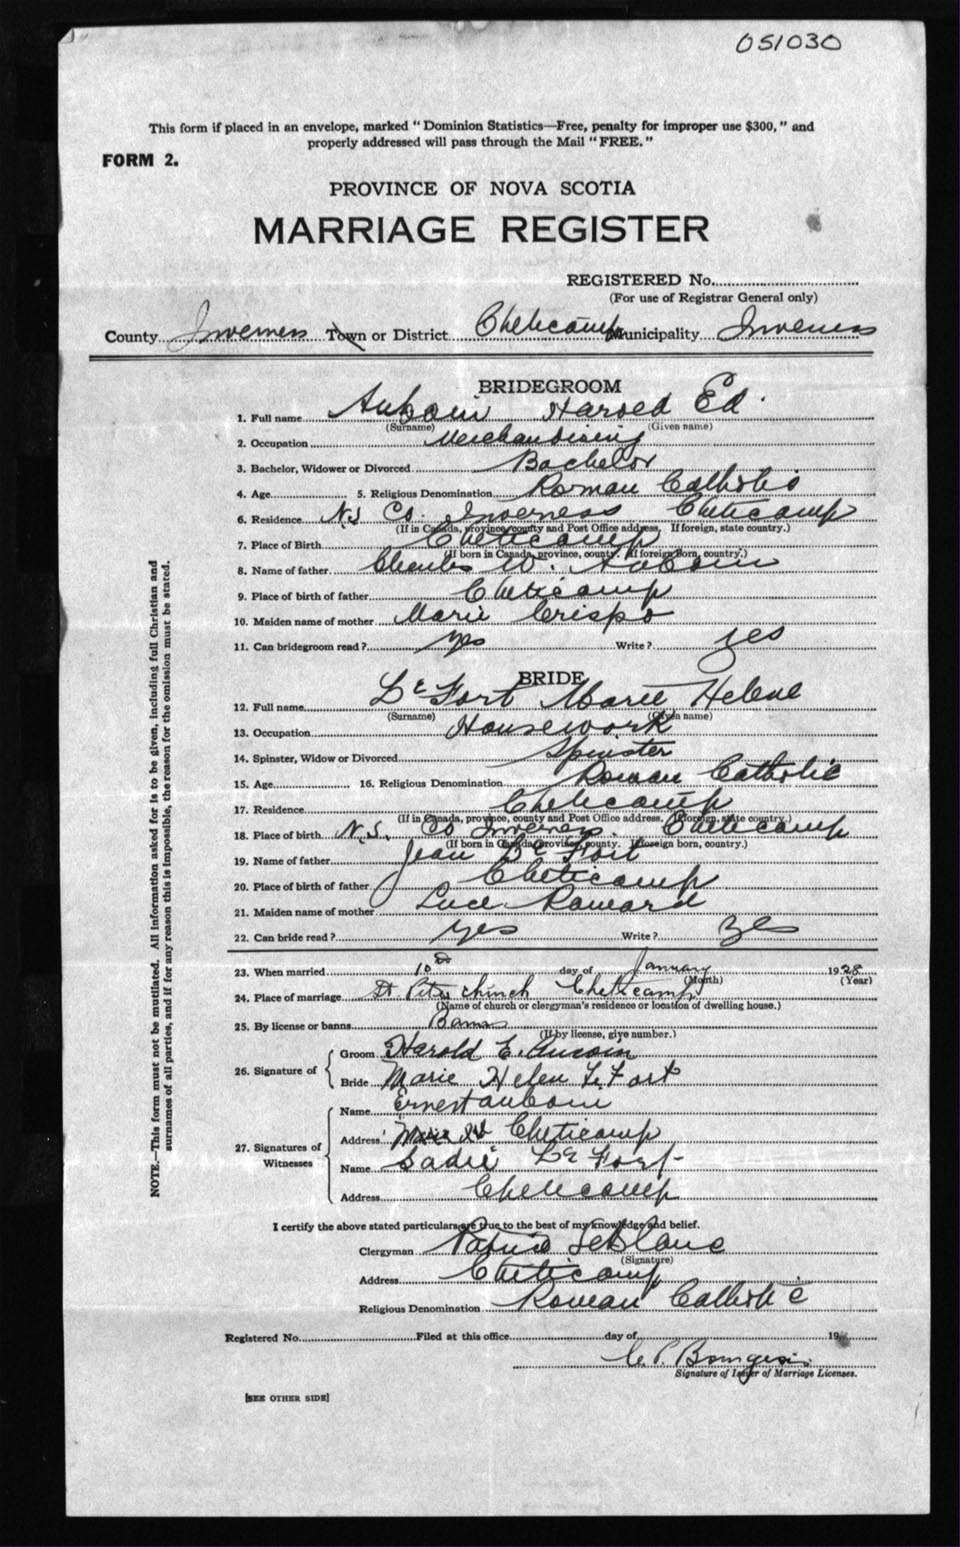 051030
This form if placed in an envelope, marked "Dominion Statistics—Free, penalty for improper use $300," and
properly addressed will pass through the Mail "FREE."
FORM 2.
PROVINCE OF NOVA SCOTIA
MARRIAGE REGISTER
REGISTERED No.
(For use of Registrar General only)
County Inverness Town or District Cheticamp Municipality Inverness
BRIDEGROOM
1. Full name Aucoin Harold Ed.
(Surname) (Given name)
2. Occupation Merchandising
3. Bachelor, Widower or Divorced Bachelor
4. Age 5. Religious Denomination Roman Catholic
6. Residence N.S Co. Inverness Cheticamp
(If in Canada, province, county and Post Office address. If foreign, state country.)
7. Place of Birth Cheticamp
(If born in Canada, province, county. If foreign born, country.)
8. Name of father Charles W. Aucoin
9. Place of birth of father Cheticamp
10. Maiden name of mother Marie Crispo
11. Can bridegroom read? yes Write? yes
BRIDE
12. Full name LeFort Marie Helene
(Surname) (Given name)
13. Occupation Housework
14. Spinster, Widow or Divorced Spinster
15. Age 16. Religious Denomination Roman Catholic
17. Residence Cheticamp
(If in Canada, province, county and Post Office address. If foreign, state country.)
18. Place of birth N.S. Co Inverness. Cheticamp
(If born in Canada, province, county. If foreign born, country.)
19. Name of father Jean LeFort
20. Place of birth of father Cheticamp
21. Maiden name of mother Luce
22. Can bride read? yes Write? yes
23. When married 10 day of January 1928
(Month) (Year)
24. Place of marriage St. Peter church Cheticamp
(Name of church or clergyman's residence or location of dwelling house.)
25. By license or banns Banns
(If by license, give number.)
26. Signature of
Groom Harold E. Aucoin
Bride Marie Helen LeFort
27. Signatures of Witnesses
Name Ernest Aucoin
Address Cheticamp
Name Sadie LeFort
Address Cheticamp
I certify the above stated particulars are true to the best of my knowledge and belief.
Clergyman LeBlanc
(Signature)
Address Cheticamp
Religious Denomination Roman Catholic
Registered No. Filed at this office day of 19
C. P. Bourgeois
Signature of Issuer of Marriage Licenses.
[SEE OTHER SIDE]
NOTE.—This form must not be mutilated. All information asked for is to be given, including full Christian and
surnames of all parties, and if for any reason this is impossible, the reason for the omission must be stated.